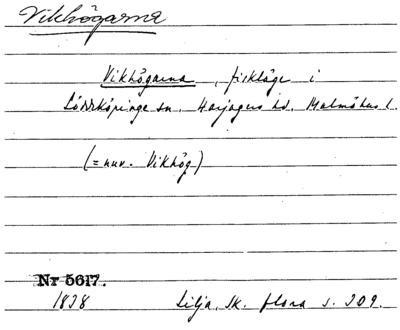 Vikhögarna
Vikhögarna, fiskläge i
Löddeköpinge sn. Harjagers hd. Malmöhus l.
(= nuv. Vikhög)
Nr 5617.
1838 Lilja, Sk. flora s. 209.